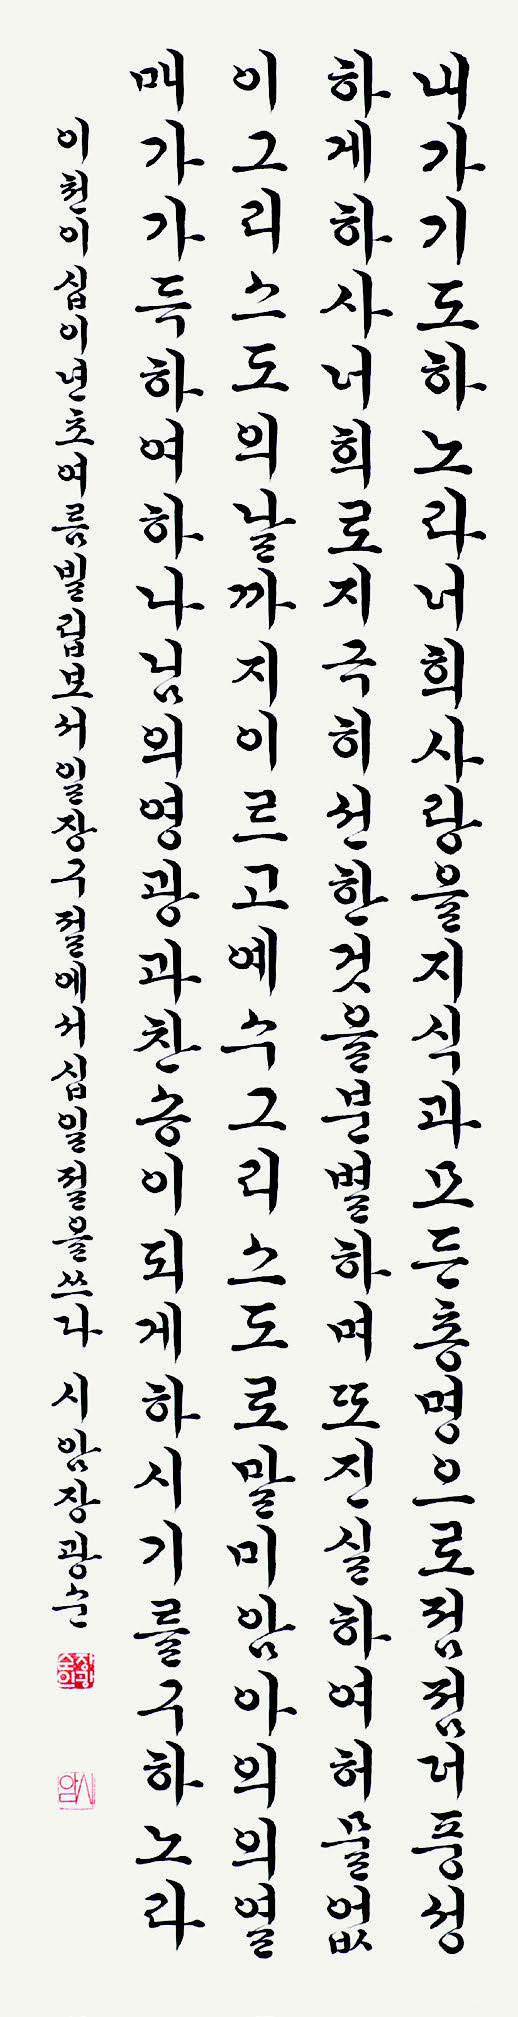 내가기도하노라너희사랑을지식과모든총명으로점점더풍성
하게하사너희로지극히선한것을분별하며또진실하여허물없
이그리스도의날까지이르고예수그리스도로말미암아의의열
매가가득하여하나님의영광과찬송이되게하시기를구하노라
이천이십이년초여름빌립보서일장구절에서십일절을쓰다 시암장광순
장광순인
시암